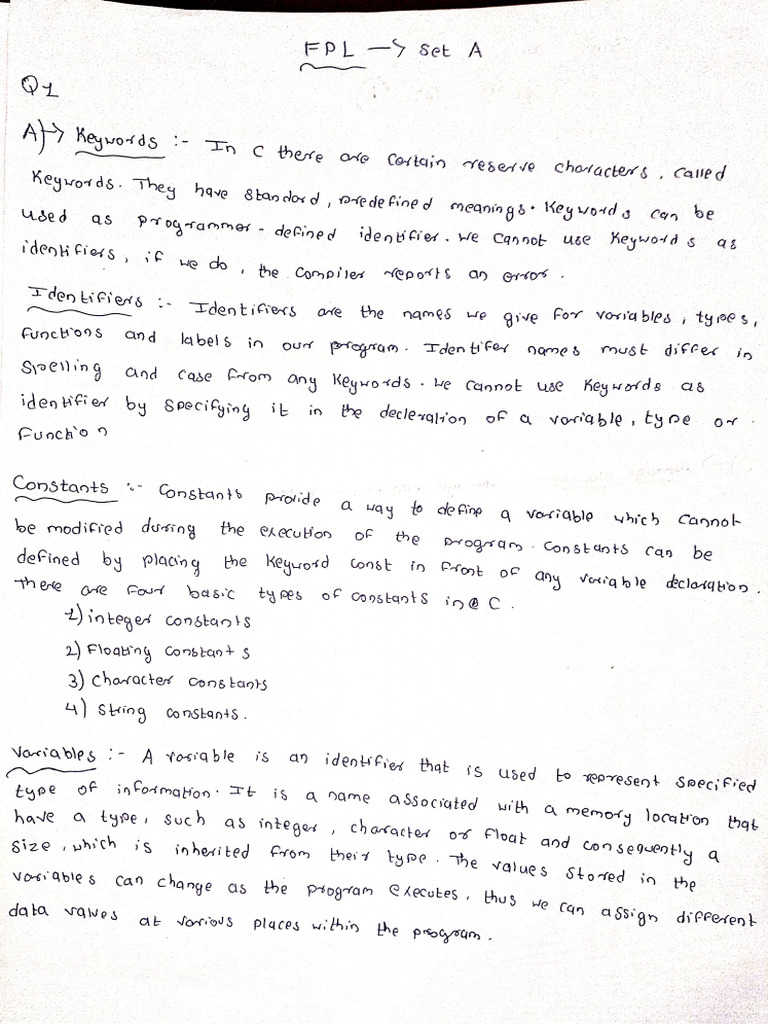 FPL → set A
Q1
A)→ Keywords :- In C there are certain reserve characters, called
Keywords. They have standard, predefined meanings. Keywords can be
used as programmer-defined identifier. We cannot use Keywords as
identifiers, if we do, the compiler reports an error.
Identifiers :- Identifiers are the names we give for variables, types,
functions and labels in our program. Identifer names must differ in
spelling and case from any Keywords. We cannot use Keywords as
identifier by specifying it in the decleration of a variable, type or
function
Constants :- Constants provide a way to define a variable which cannot
be modified during the execution of the program. Constants can be
defined by placing the Keyword const in front of any variable declaration.
There are four basic types of constants in C.
1) integer constants
2) Floating constants
3) Character constants
4) String constants.
Variables :- A variable is an identifier that is used to represent specified
type of information. It is a name associated with a memory location that
have a type, such as integer, character or float and consequently a
size, which is inherited from their type. The values stored in the
variables can change as the program executes, thus we can assign different
data values at various places within the program.